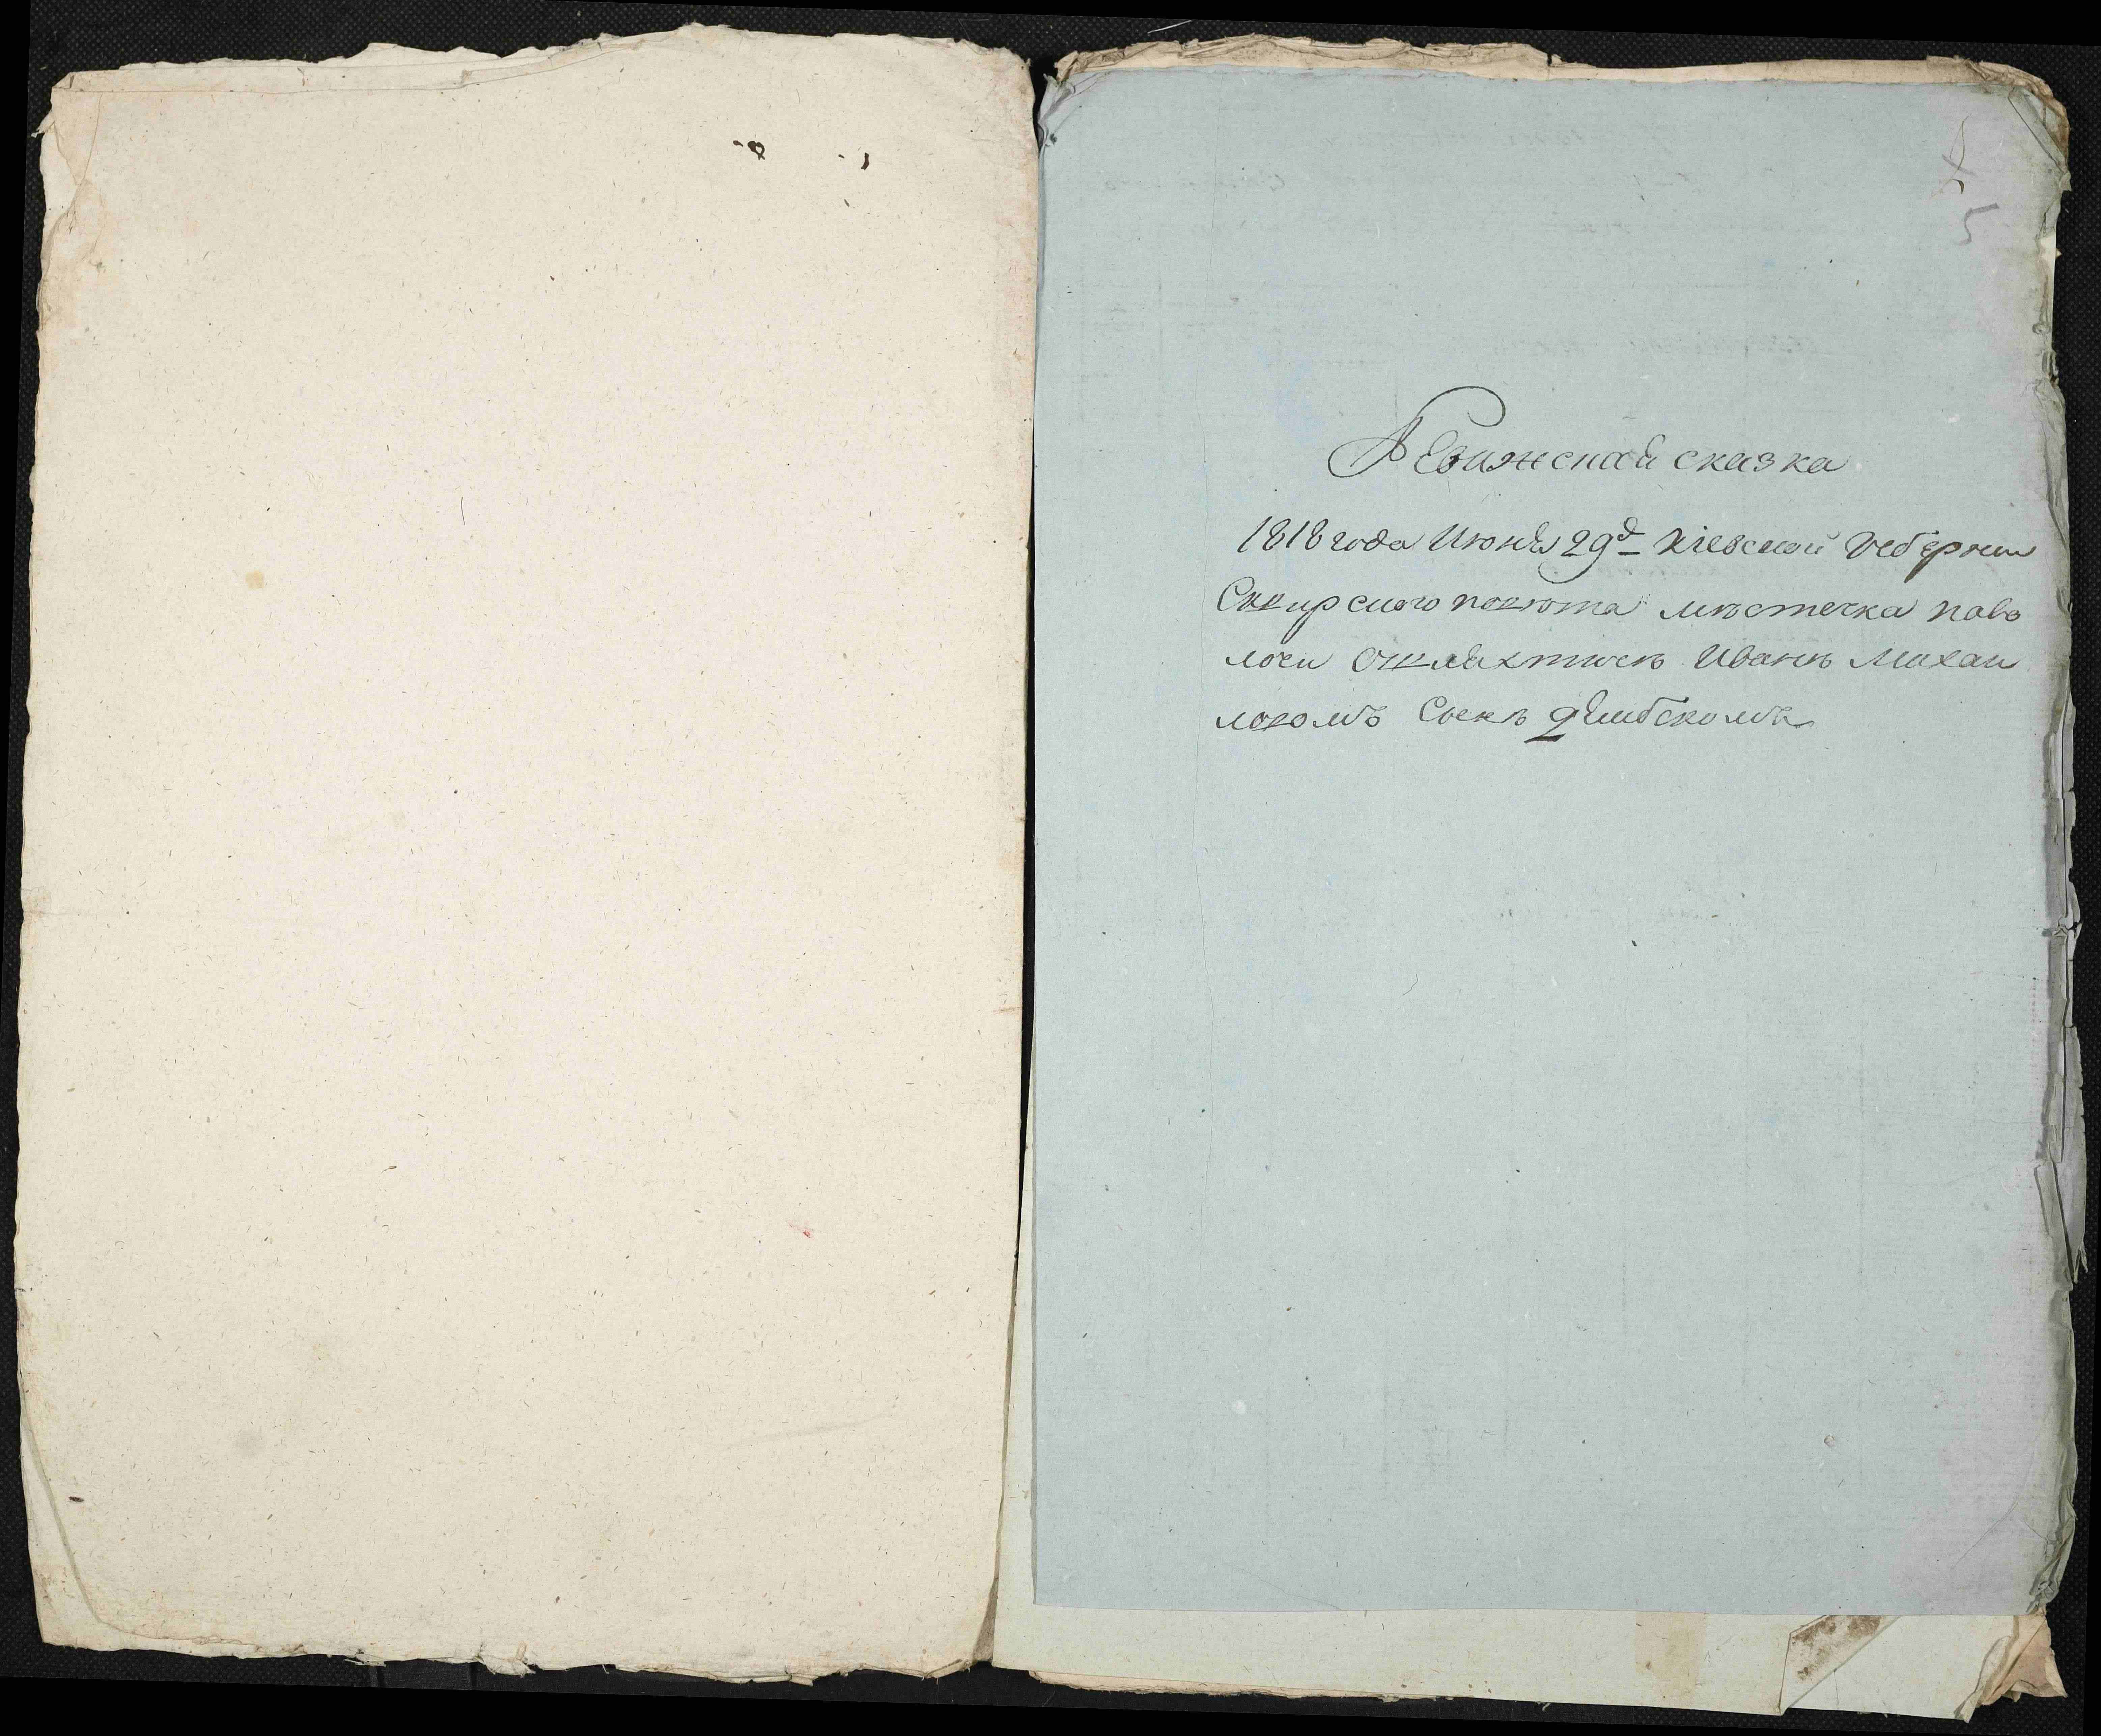 5
Ревижской сказка
1818 года Июня 29д Кіевской Губернии
Сквирского повѣта мѣстечка паво
лочи Ошляхтичѣ Иванѣ Михаи
ловомъ Сынѣ